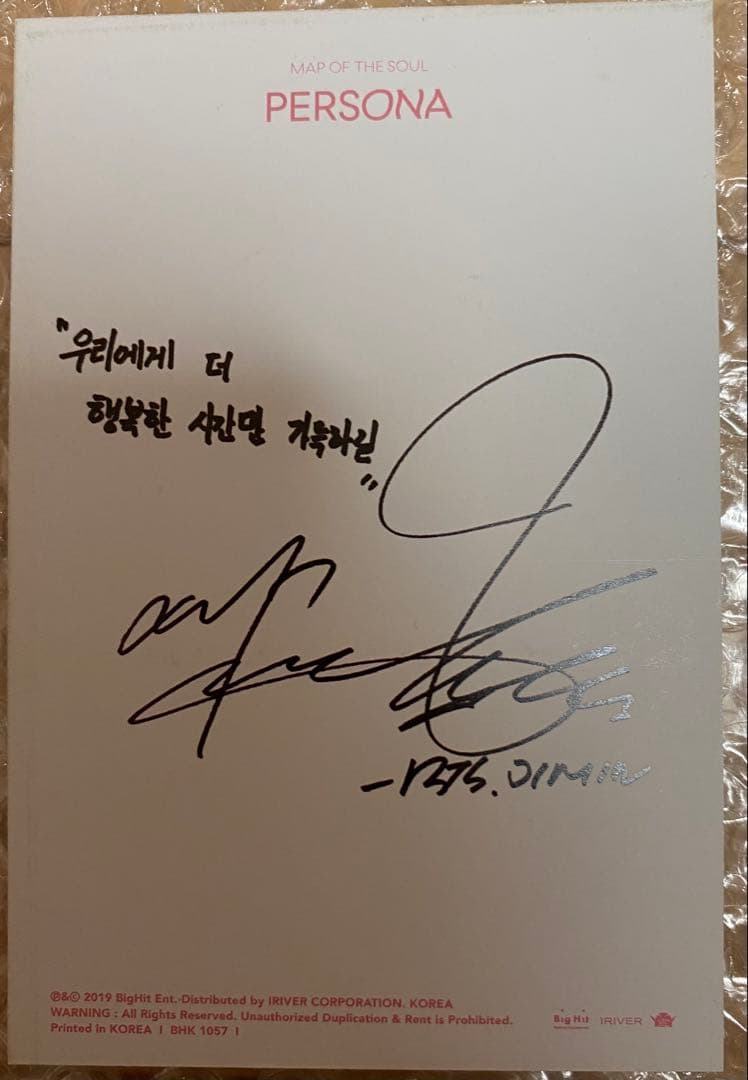 MAP OF THE SOUL
PERSONA
"우리에게 더
행복한 시간만 가득하길
"
-BTS. JIMIN
℗&© 2019 BigHit Ent.·Distributed by IRIVER CORPORATION. KOREA
WARNING : All Rights Reserved. Unauthorized Duplication & Rent is Prohibited.
Printed in KOREA I BHK 1057 I
Big Hit IRIVER